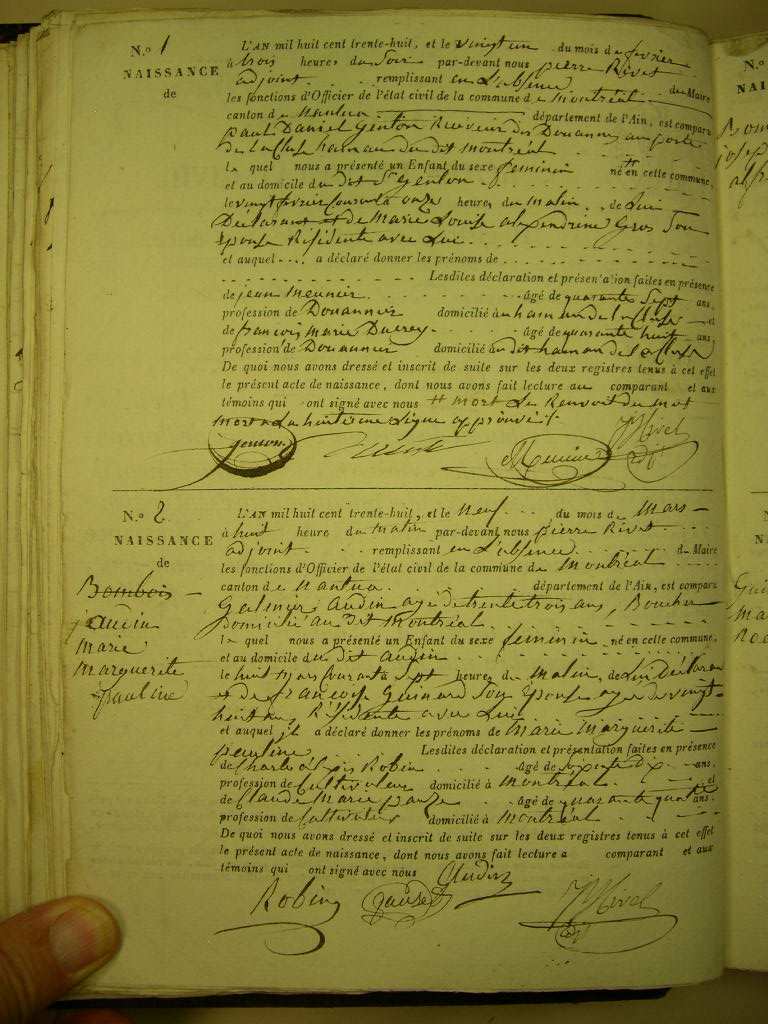 N.o 1
NAISSANCE
de
L'AN mil huit cent trente-huit, et le vingt un du mois de fevrier
à trois heures du Soir par-devant nous pierre Rivet
adjoint remplissant en L'absence du Maire
les fonctions d'Officier de l'état civil de la commune de Montréal
canton de Nantua département de l'Ain, est comparu
paul Daniel Genton Receveur des Douannes au poste
de la Cluse hameau du dit Montréal
le quel nous a présenté un Enfant du sexe feminin né tt en cette commune,
et au domicile du dit Sr Genton
le vingt fevrier courant à onze heures du Matin de Lui
Déclarant et de Marie Louise alexendrine Gros Son
Epouse Résidente avec Lui
et auquel a déclaré donner les prénoms de
Lesdites déclaration et présentation faites en présence
de jean Meunier âgé de quarante Sept ans,
profession de Douannier domicilié au hameau de la Cluse et
de francois Marie Ducrey âgé de quarante huit ans,
profession de Douannier domicilié au dit hameau de la Cluse
De quoi nous avons dressé et inscrit de suite sur les deux registres tenus à cet effet
le présent acte de naissance, dont nous avons fait lecture au comparant et aux
témoins qui ont signé avec nous tt mort Le Renvoit du mot
mort a La huitieme Ligne approuvé
genton Meunier Rivet
adjt
N.o 2
NAISSANCE
de
Bombois
Audin
Marie
Marguerite
pauline
L'AN mil huit cent trente-huit, et le Neuf du mois de Mars
à huit heure du Matin par-devant nous pierre Rivet
adjoint remplissant en L'absence du Maire
les fonctions d'Officier de l'état civil de la commune de Montréal
canton de Nantua département de l'Ain, est comparu
Galmier Audin agé de trente trois ans, Boucher
Domicilié au dit Montréal
le quel nous a présenté un Enfant du sexe feminin né en cette commune,
et au domicile du dit Audin
le huit Mars courant a Sept heures du Matin, de Lui Déclarant
et de francoise Guinard Son Epouse agée de vingt-
huit ans, Résidente avec Lui
et auquel il a déclaré donner les prénoms de Marie Marguerite
pauline Lesdites déclaration et présentation faites en présence
de Charle alexis Robin âgé de Soixante Dix ans,
profession de Cultivateur domicilié à Montréal et
de Claude Marie gauze âgé de quarante quatre ans,
profession de Cultivateur domicilié à Montréal
De quoi nous avons dressé et inscrit de suite sur les deux registres tenus à cet effet
le présent acte de naissance, dont nous avons fait lecture a comparant et aux
témoins qui ont signé avec nous Audin
Robin Rivet
adjt
N.o
NAI